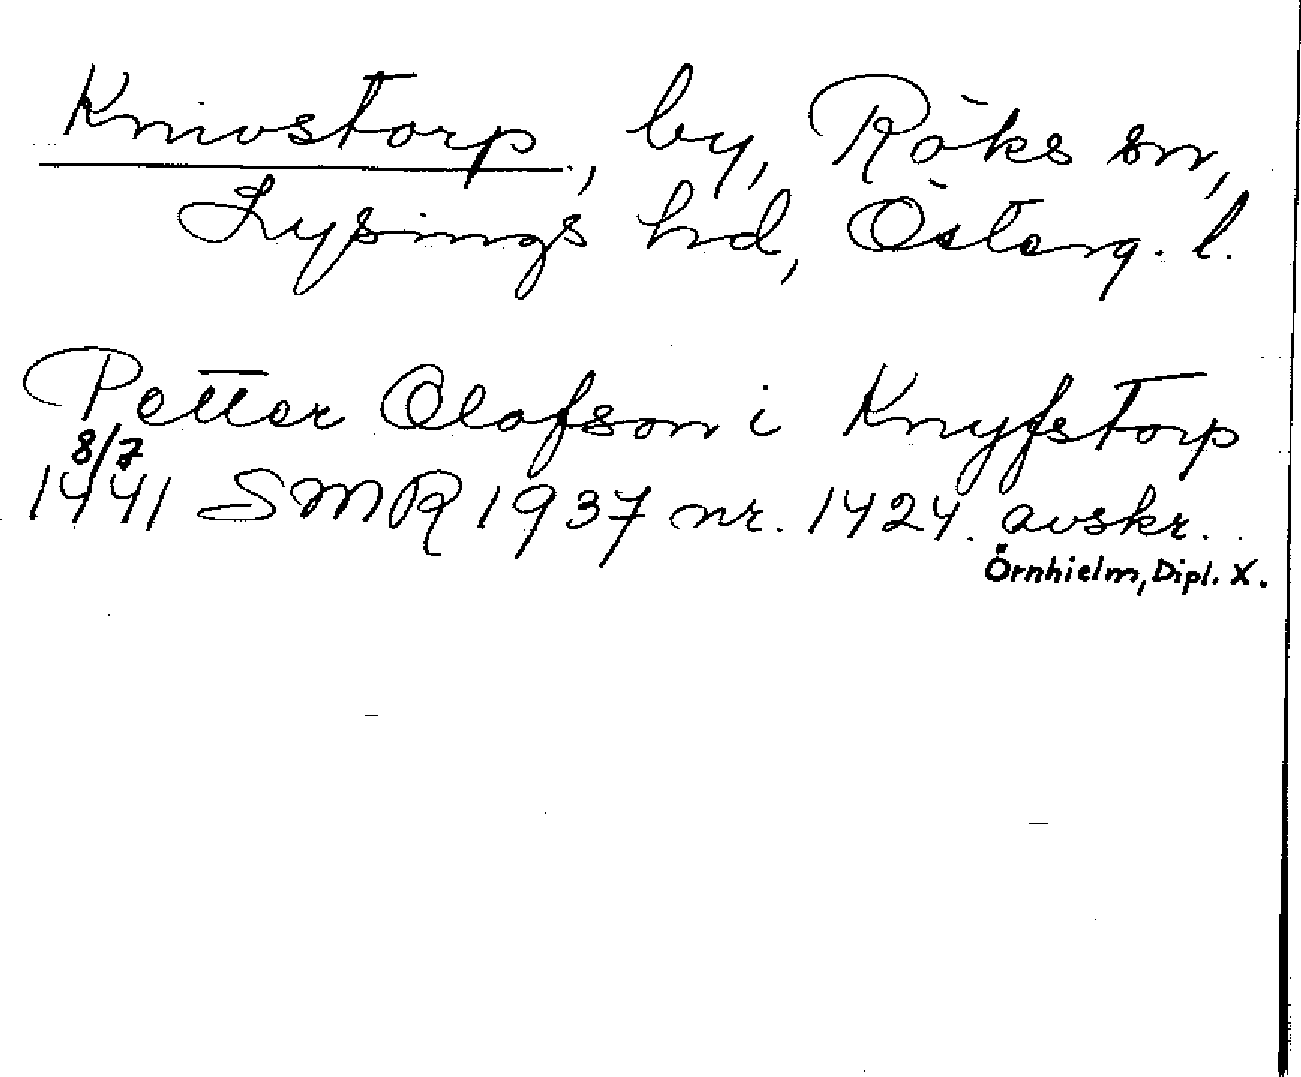 Knivstorp, by, Röks sn,
Lysings hd, Österg. l.
Petter Olofson i Knyfstorp
8/7
1441 SMR 1937 nr. 1424. avskr.
Örnhielm, Dipl. X.